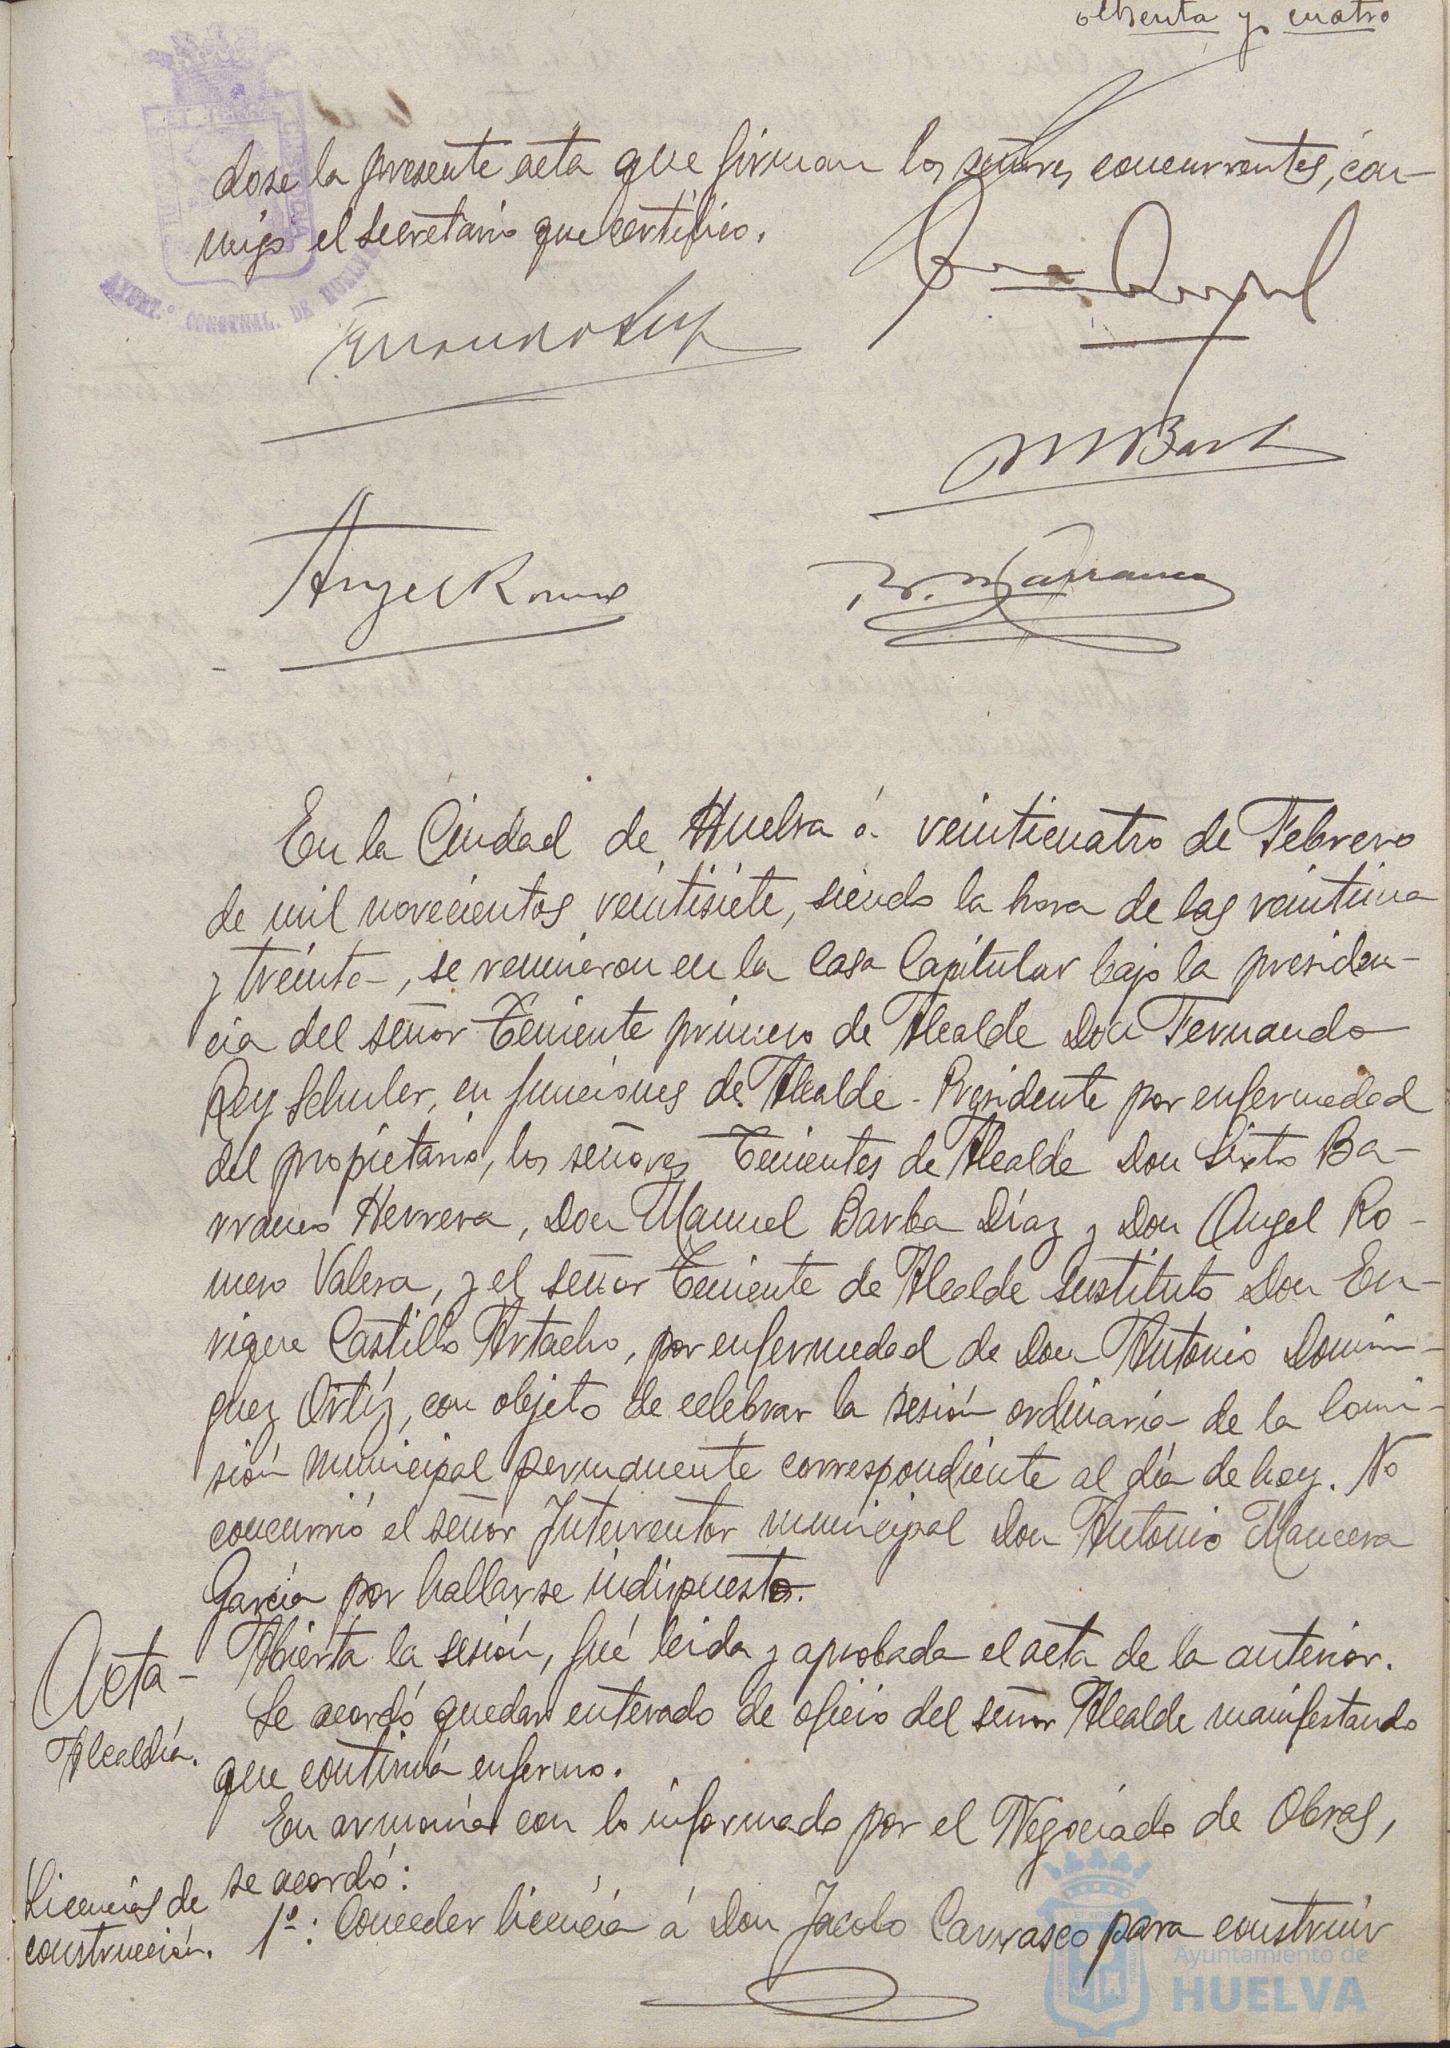 ochenta y cuatro
dose la presente acta que firman los señores concurrentes, con-
migo el secretario que certifico.
AYUNT.º CONSTNAL. DE HUELVA
M Barb
Angel Romero
S. Barranco
En la Ciudad de Huelva á veinticuatro de Febrero
de mil novecientos veintisiete, siendo la hora de las veintiuna
y treinta, se reunieron en la Casa Capitular bajo la presiden-
cia del señor Teniente primero de Alcalde Don Fernando
Rey Schuler, en funciones de Alcalde-Presidente por enfermedad
del propietario, los señores Tenientes de Alcalde Don Sixto Ba-
rranco Herrera, Don Manuel Barba Díaz y Don Angel Ro-
mero Valera, y el señor Teniente de Alcalde sustituto Don En-
rique Castillo Artacho, por enfermedad de Don Antonio Domin-
guez Ortíz, con objeto de celebrar la sesión ordinaria de la Comi-
sión municipal permanente correspondiente al día de hoy. No
concurrió el señor Interventor municipal Don Antonio Mancera
García por hallarse indispuesto.
Acta - Abierta la sesión, fué leida y aprobada el acta de la anterior.
Se acordó quedar enterado de oficio del señor Alcalde manifestando
Alcaldía. que continúa enfermo.
En armonía con lo informado por el Negociado de Obras,
se acordó:
Licencias de
construcción. 1º: Conceder licencia á Don Jacobo Carrasco para construir
Ayuntamiento de
HUELVA